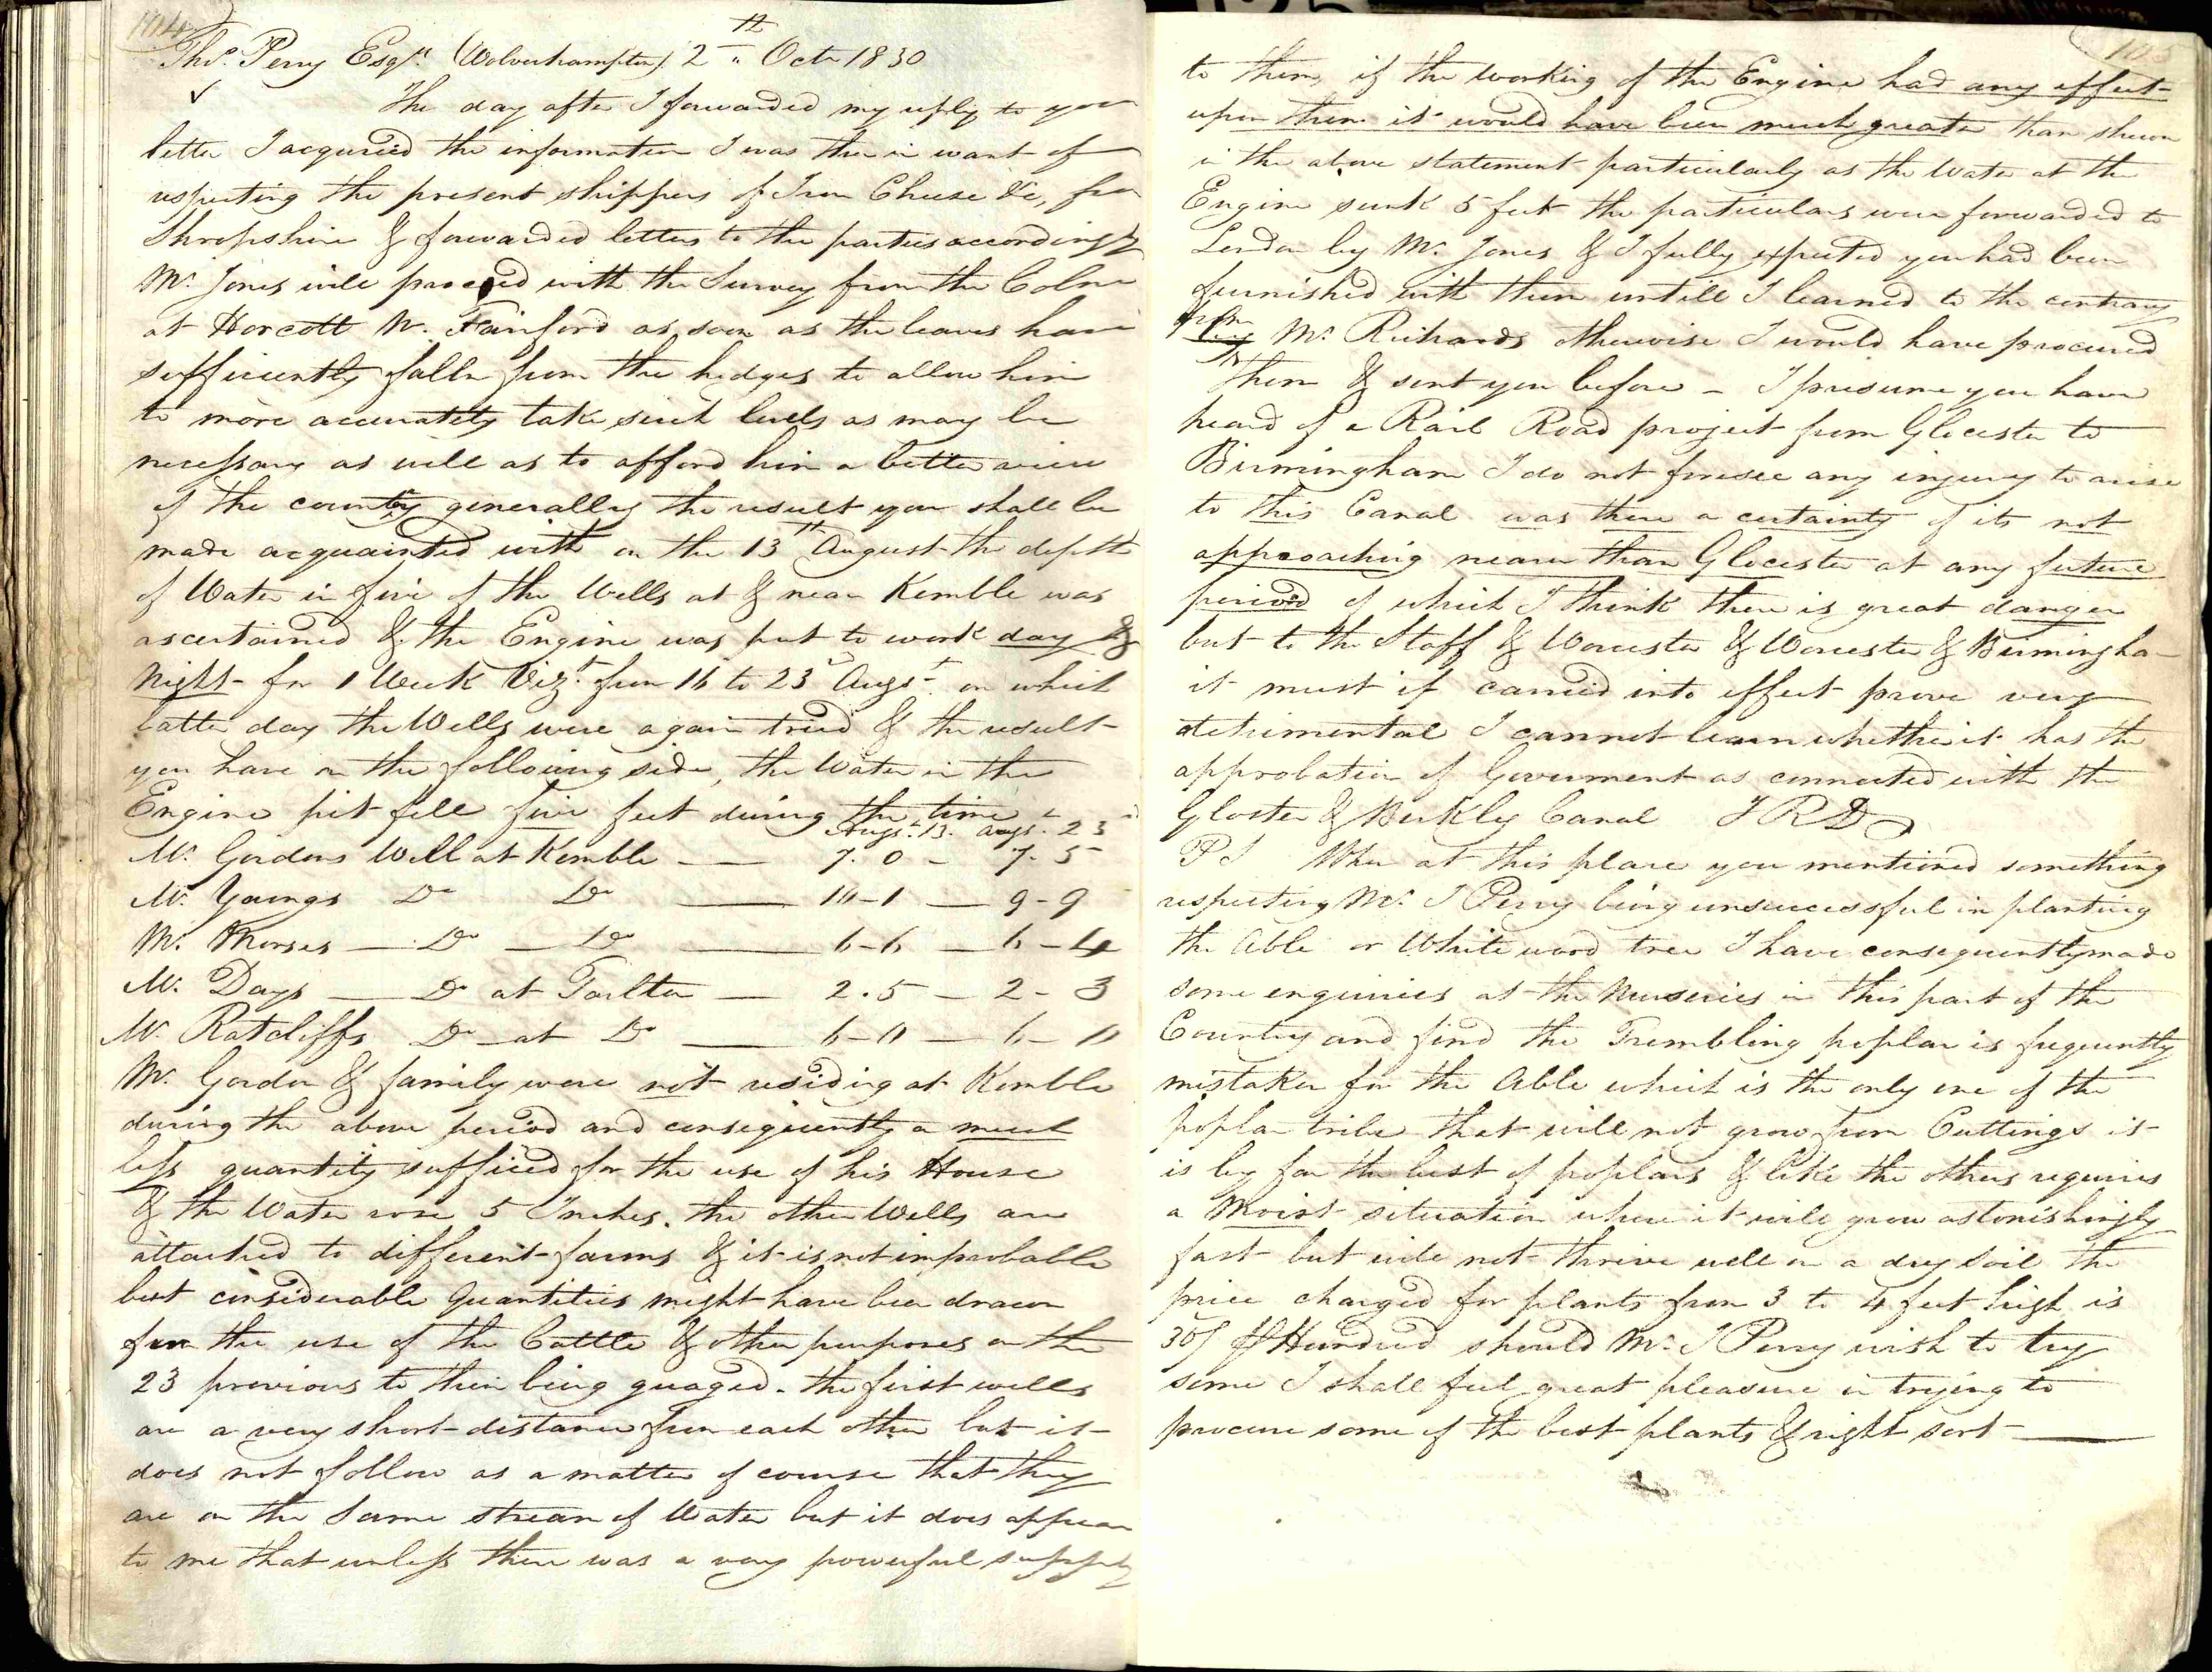 104
Thos. Perry Esqr. (Wolverhampton) 2th Octr 1830
The day after I forwarded my reply to your
letter I acquired the information I was then in want of
respecting the present shippers of Iron Cheese &c, from
Shropshire & forwarded letters to the parties accordingly
Mr. Jones will proceed with the Survey from the Colne
at Horcott Nr. Fairford as soon as the leaves have
sufficiently falln from the hedges to allow him
to more accurately take such levels as may be
necessary as well as to afford him a better view
of the country generally the result you shall be
made acquainted with on the 13th August the depth
of Water in five of the Wells at & near Kemble was
ascertained & the Engine was put to work day &
Night for 1 Week Vizt. from 16 to 23d Augst. on which
latter day the Wells were again tried & the result
you have on the following side, the Water in the
Engine pit fell five feet during the time
Augst. 13. Augst. 23d
Mr. Gordons Well at Kemble — 7.0 — 7.5
Mr. Youngs Do Do — 10-1 — 9-9
Mr. Morses — Do — Do — 6-6 — 6-4
Mr. Days — Do at Tarlton — 2.5 — 2-3
Mr. Ratcliffs Do — at Do — 6-11 — 6-11
Mr. Gordon & family were not residing at Kemble
during the above period and consequently a much
less quantity sufficed for the use of his House
& the Water rose 5 Inches. the other Wells are
attached to different farms & it is not improbable
but considerable Quantities might have been drawn
from the use of the Cattle & other purposes on the
23 previous to their being guaged. the first wells
are a very short distance from each other but it
does not follow as a matter of course that they
are on the same stream of Water but it does appear
to me that unless there was a very powerful supply
105
to them, if the working of the Engine had any effect
upon them it would have been much greater than shewn
in the above statement particularly as the Water at the
Engine sunk 5 feet the particulars were forwarded to
London by Mr. Jones & I fully expected you had been
furnished with them untill I learned to the contrary
from
by Mr. Richards otherwise I would have procured
them & sent you before — I presume you have
heard of a Rail Road project from Glocester to
Birmingham I do not foresee any injury to arise
to this Canal was there a certainty of its not
approaching nearer than Glocester at any future
period of which I think there is great danger
but to the Staff & Worcester & Worcester & Birmingham
it must if carried into effect prove very
detrimental I cannot learn whether it has the
approbation of Goverment as connected with the
Gloster & Berkly Canal J R D
P S When at this place you mentioned something
respecting Mr. J Perry being unsuccessful in planting
the Able or White wood tree I have consequently made
some enquiries at the Nurseries in this part of the
Country and find the Trembling poplar is frequently
mistaken for the Able which is the only one of the
poplar tribe that will not grow from Cuttings it
is by far the best of poplars & like the others requires
a Moist situation where it will grow astonishingly
fast but will not thrive well on a dry soil the
price charged for plants from 3 to 4 feet high is
30/ Hundred should Mr. J Perry wish to try
some I shall feel great pleasure in trying to
procure some of the best plants & right sort —